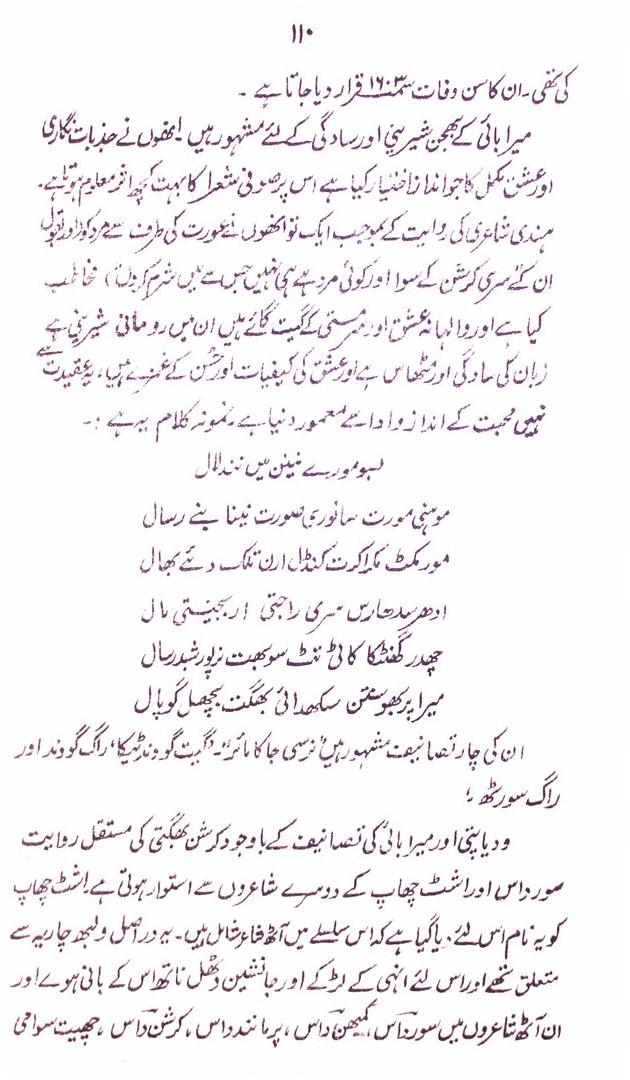 ۱۱۰
کی تھی۔ ان کا سن وفات سمت ۱۶۰۳ قرار دیا جاتا ہے ۔
میرا بائی کے بھجن شیرینی اور سادگی کے لئے مشہور ہیں ۔ انھوں نے جذبات نگاری
اور عشق مکمل کا جو انداز اختیار کیا ہے اس پر صوفی شعرا کا بہت کچھ اثر معلوم ہوتا ہے۔
ہندی شاعری کی روایت کے بموجب ایک تو انھوں نے عورت کی طرف سے مرد کو (اور بقول
ان کے سری کرشن کے سوا اور کوئی مرد ہے ہی نہیں جس سے میں شرم کروں) مخاطب
کیا ہے اور والہانہ عشق اور سرمستی کے گیت گائے ہیں ان میں رومانی شیرینی ہے
زبان کی سادگی اور مٹھاس ہے اور عشق کی کیفیات اور حسن کے غمزے ہیں، یہ عقیدت سے
نہیں محبت کے انداز و ادا سے معمور دنیا ہے ۔ نمونہ کلام یہ ہے :۔
بسو مورے نینن میں نند لال
موہنی مورت سانوری صورت نینا بنے رسال
مور مکٹ مکراکرت کنڈل ارن تلک دئے بھال
ادھر سدھارس سری راجتی ار بجینتی مال
چھدر گھنٹکا کاٹی تٹ سوبھت نرپور شبد رسال
میرا پربھو سنتن سکھدائی بھگت بچھل گوپال
ان کی چار تصانیف مشہور ہیں نرسی جا کا مائرہ۔ گیت گووند ٹیکا، راگ گووند اور
راگ سورٹھ ۔
ودیاپتی اور میرا بائی کی تصانیف کے باوجود کرشن بھگتی کی مستقل روایت
سور داس اور اشٹ چھاپ کے دوسرے شاعروں سے استوار ہوتی ہے۔ اشٹ چھاپ
کو یہ نام اس لئے دیا گیا ہے کہ اس سلسلے میں آٹھ شاعر شامل ہیں۔ یہ دراصل ولبھ چاریہ سے
متعلق تھے اور اس لئے انہی کے لڑکے اور جانشین وٹھل ناتھ اس کے بانی ہوے اور
ان آٹھ شاعروں میں سور داس، کمبھن داس، پرمانند داس، کرشن داس، چھیت سوامی